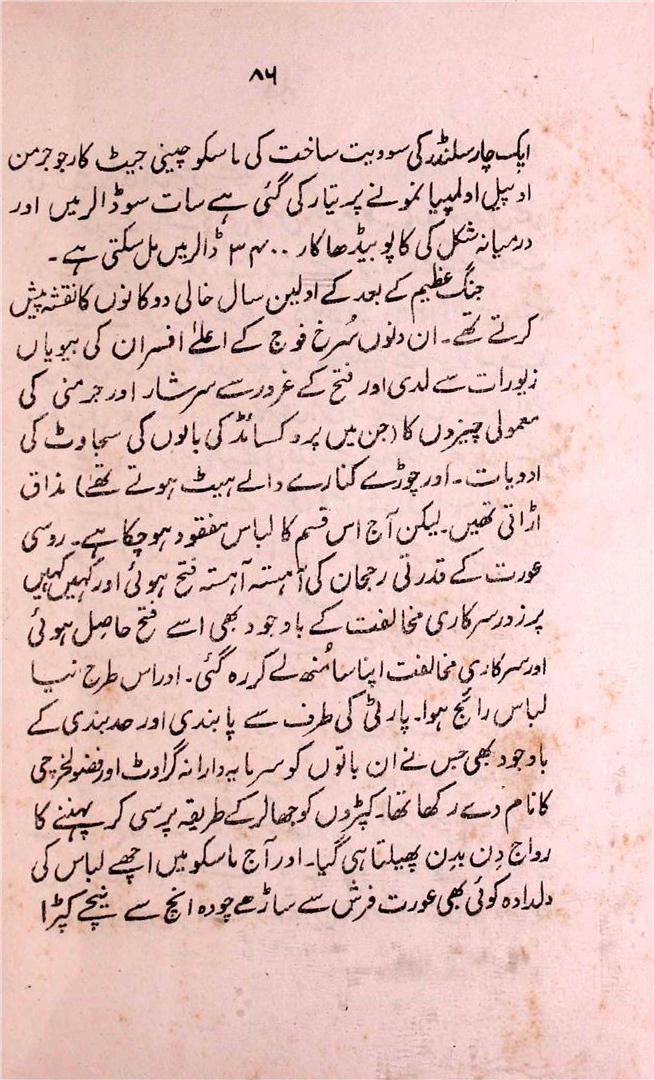 ۸۶
ایک چار سلنڈر کی سوویت ساخت کی ماسکو چینی جیٹ کار جو جرمن
اوپیل اولمپیا نمونے پر تیار کی گئی ہے سات سو ڈالر میں اور
درمیانہ شکل کی کاپو بیڈھا کار ۳۷۰۰ ڈالر میں مل سکتی ہے۔
جنگ عظیم کے بعد کے اولین سال خالی دوکانوں کا نقشہ پیش
کرتے تھے۔ ان دنوں سُرخ فوج کے اعلےٰ افسران کی بیویاں
زیورات سے لدی اور فتح کے غرور سے سرشار اور جرمنی کی
معمولی چیزوں کا (جن میں پروکسائڈ کی بالوں کی سجاوٹ کی
ادویات۔ اور چوڑے کنارے والے ہیٹ ہوتے تھے) مذاق
اڑاتی تھیں۔ لیکن آج اس قسم کا لباس مفقود ہو چکا ہے۔ روسی
عورت کے قدرتی رجحان کی آہستہ آہستہ فتح ہوئی اور کہیں کہیں
پرزور سرکاری مخالفت کے باوجود بھی اسے فتح حاصل ہوئی
اور سرکاری مخالفت اپنا سا مُنھ لے کر رہ گئی۔ اور اس طرح نیا
لباس رائج ہوا۔ پارٹی کی طرف سے پابندی اور حد بندی کے
باوجود بھی جس نے ان باتوں کو سرمایہ دارانہ گراوٹ اور فضولخرچی
کا نام دے رکھا تھا۔ کپڑوں کو جھالر کے طریقہ پر سی کر پہننے کا
رواج دِن بدِن پھیلتا ہی گیا۔ اور آج ماسکو میں اچھے لباس کی
دلدادہ کوئی بھی عورت فرش سے ساڑھے چودہ انچ سے نیچے کپڑا